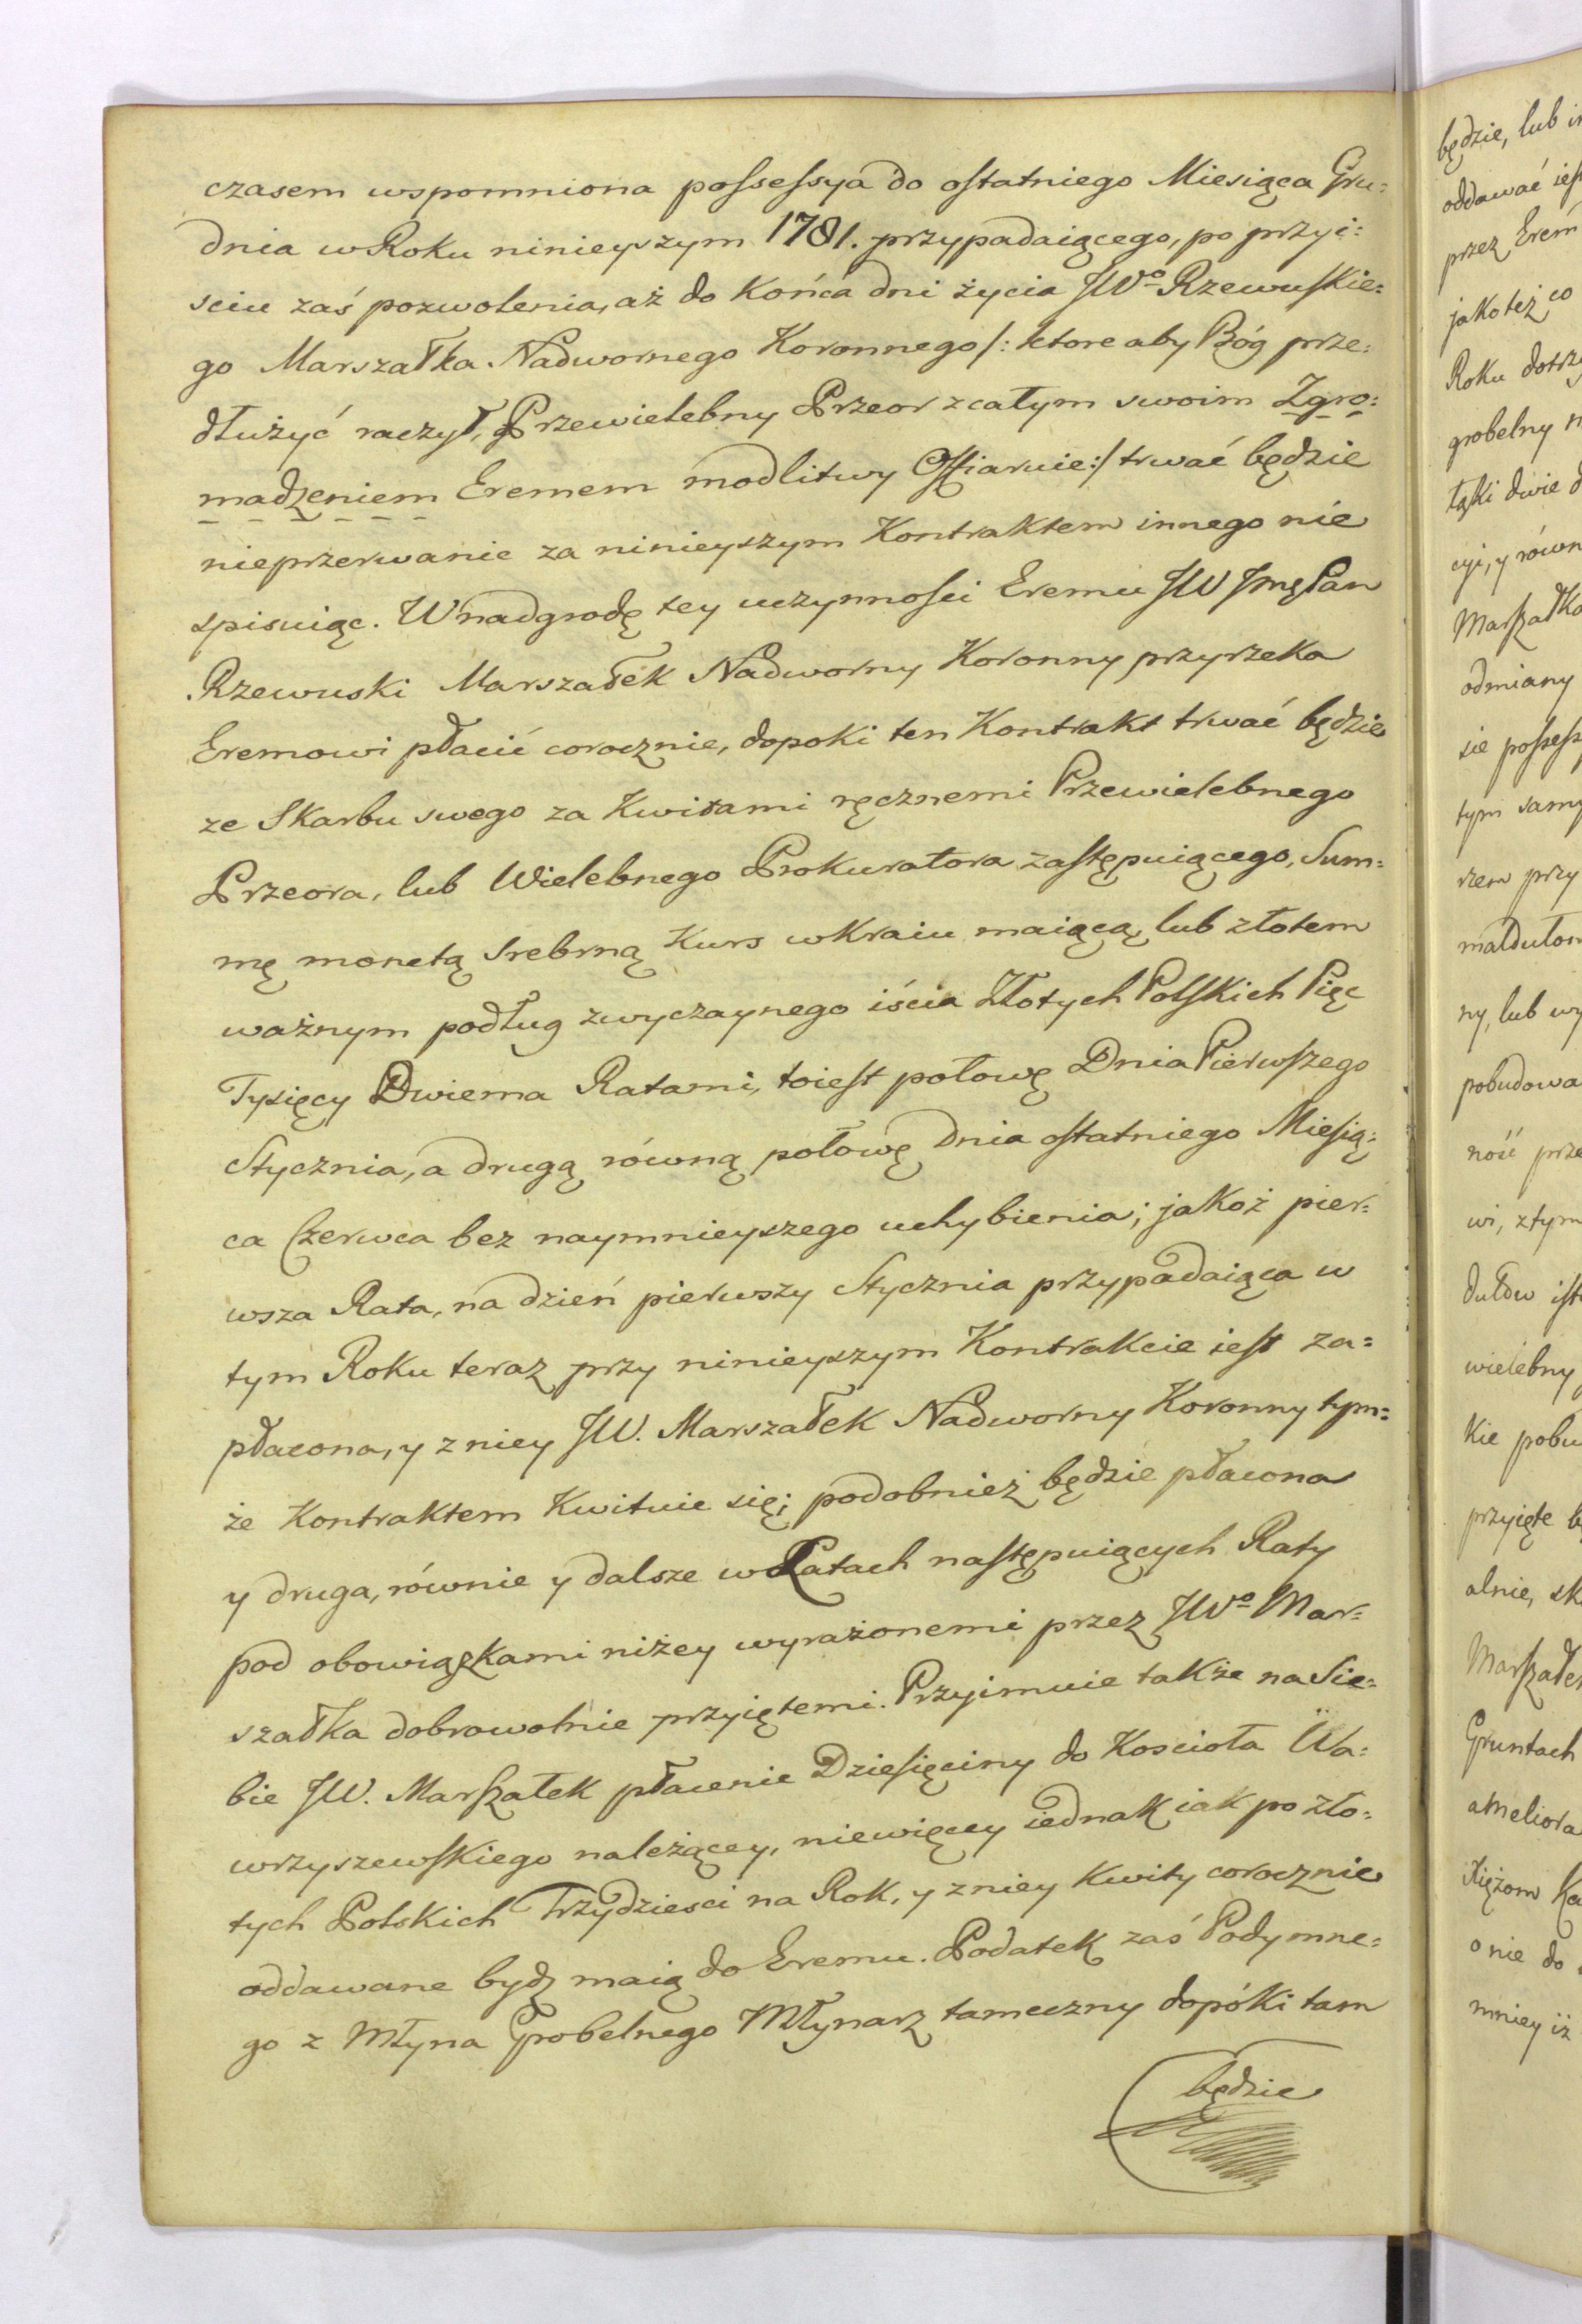 czasem wspomniona possessya do ostatniego Miesiąca Gru=
dnia w Roku ninieyszym 1781. przypadaiącego, po przyi=
sciu zaś pozwolenia, aż do Końca dni życia JWo Rzewuskie=
go Marszałka Nadwornego Koronnego /: ktore aby Bóg prze=
dłużyć raczył, Przewielebny Przeor z całym swoim Zgro=
madzeniem Eremem modlitwy Offiaruie :/ trwać będzie
nieprzerwanie za ninieyszym Kontraktem innego nie
spisuiąc. W nadgrodę tey uczynności Eremu JW Jmę Pan
Rzewuski Marszałek Nadworny Koronny przyrzeka
Eremowi płacić corocznie, dopoki ten Kontrakt trwać będzie
ze Skarbu swego za Kwitami ręcznemi Przewielebnego
Przeora, lub Wielebnego Prokuratora zastępuiącego, Sum=
mę monetą Srebrną Kurs w Kraiu maiącą, lub złotem
ważnym podług zwyczaynego iścia Złotych Polskich Pięć
Tysięcy Dwiema Ratami, toiest połowę Dnia Pierwszego
Stycznia, a drugą równą połowę Dnia ostatniego Miesią=
ca Czerwca bez naymnieyszego uchybienia; jakoż pier=
wsza Rata, na dzień pierwszy Stycznia przypadaiąca w
tym Roku teraz przy ninieyszym Kontrakcie iest za=
płacona, y z niey JW. Marszałek Nadworny Koronny tym=
że Kontraktem Kwituie się; podobnież będzie płacona
y druga, równie y dalsze w Latach następuiących Raty
pod obowiązkami niżey wyrażonemi przez JWo Mar=
szałka dobrowolnie przyiętemi. Przyimuie także na Sie=
bie JW. Marszałek płacenie Dziesięciny do Kościoła Wa=
wrzyszewskiego należącey, niewięcey iednak iak po zło=
tych Polskich Trzydziesci na Rok, y z niey Kwity corocznie
oddawane bydz maią do Eremu. Podatek zaś Podymne=
go z Młyna Grobelnego Młynarz tameczny dopóki tam
będzie
będzie, lub
oddawać iest
przez Erem
jako też co
Roku dotrzy
grobelny
łąki dwie
cyi, y równ
Marszałko
odmiany
sie possess
tym samy
rzem przy
maldułom
ny, lub wy
pobudowa
ność prze
wi, z tym
dułów ist
wielebny
kie pobu
przyięte
alnie, sk
Marszałek
Gruntach
ameliora
Xiężom Ka
o nie do
mniey iż